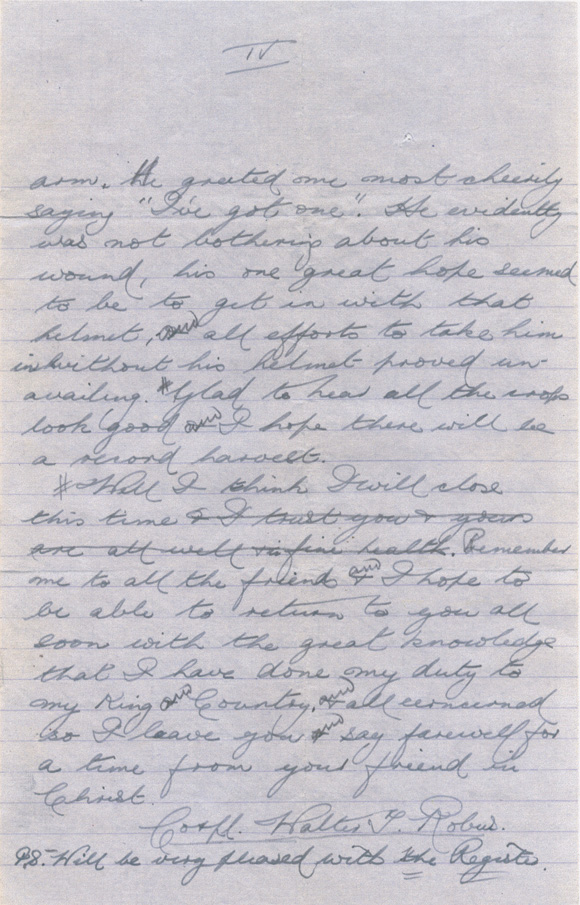 IV
arm. He greeted me most cheerily
saying "I've got one". He evidently
was not bothering about his
wound, his one great hope seemed
to be to get in with that
helmet, and all efforts to take him
in without his helmet proved un-
availing. # Glad to hear all the crops
look good and I hope there will be
a record harvest.
# Well I think I will close
this time & I trust you & yours
are all well in fine health. Remember
me to all the friend and I hope to
be able to return to you all
soon with the great knowledge
that I have done my duty to
my King and Country, and all concerned
so I leave you and say farewell for
a time from your friend in
Christ.
Corpl. Walter F. Robus.
P.S. Will be very pleased with the Register.